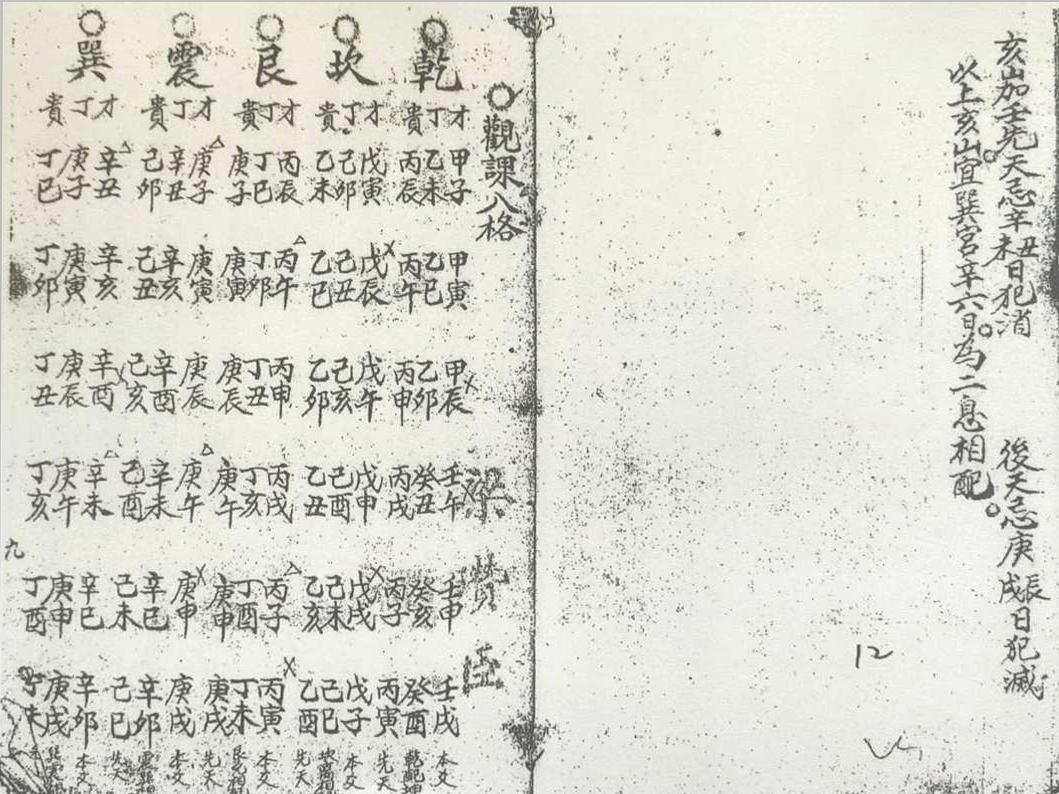 亥山加壬先天忌辛丑未日犯消 後天忌庚辰戌日犯滅
以上亥山宜巽宮辛六日為二息相配
觀課八格
乾
才 甲子 甲寅 甲辰 壬午 壬申 壬戌 本爻
丁 乙未 乙巳 乙卯 癸丑 癸亥 癸酉 乾配坤
貴 丙辰 丙午 丙申 丙戌 丙子 丙寅 先天
坎
才 戊寅 戊辰 戊午 戊申 戊戌 戊子 本爻
丁 己卯 己丑 己亥 己酉 己未 己巳
貴 乙未 乙巳 乙卯 乙丑 乙亥 乙酉 先天
艮
才 丙辰 丙午 丙申 丙戌 丙子 丙寅 本爻
丁 丁巳 丁卯 丁丑 丁亥 丁酉 丁未
貴 庚子 庚寅 庚辰 庚午 庚申 庚戌 先天
震
才 庚子 庚寅 庚辰 庚午 庚申 庚戌 本爻
丁 辛丑 辛亥 辛酉 辛未 辛巳 辛卯
貴 己卯 己丑 己亥 己酉 己未 己巳 先天
巽
才 辛丑 辛亥 辛酉 辛未 辛巳 辛卯 本爻
丁 庚子 庚寅 庚辰 庚午 庚申 庚戌
貴 丁巳 丁卯 丁丑 丁亥 丁酉 丁未
九
12